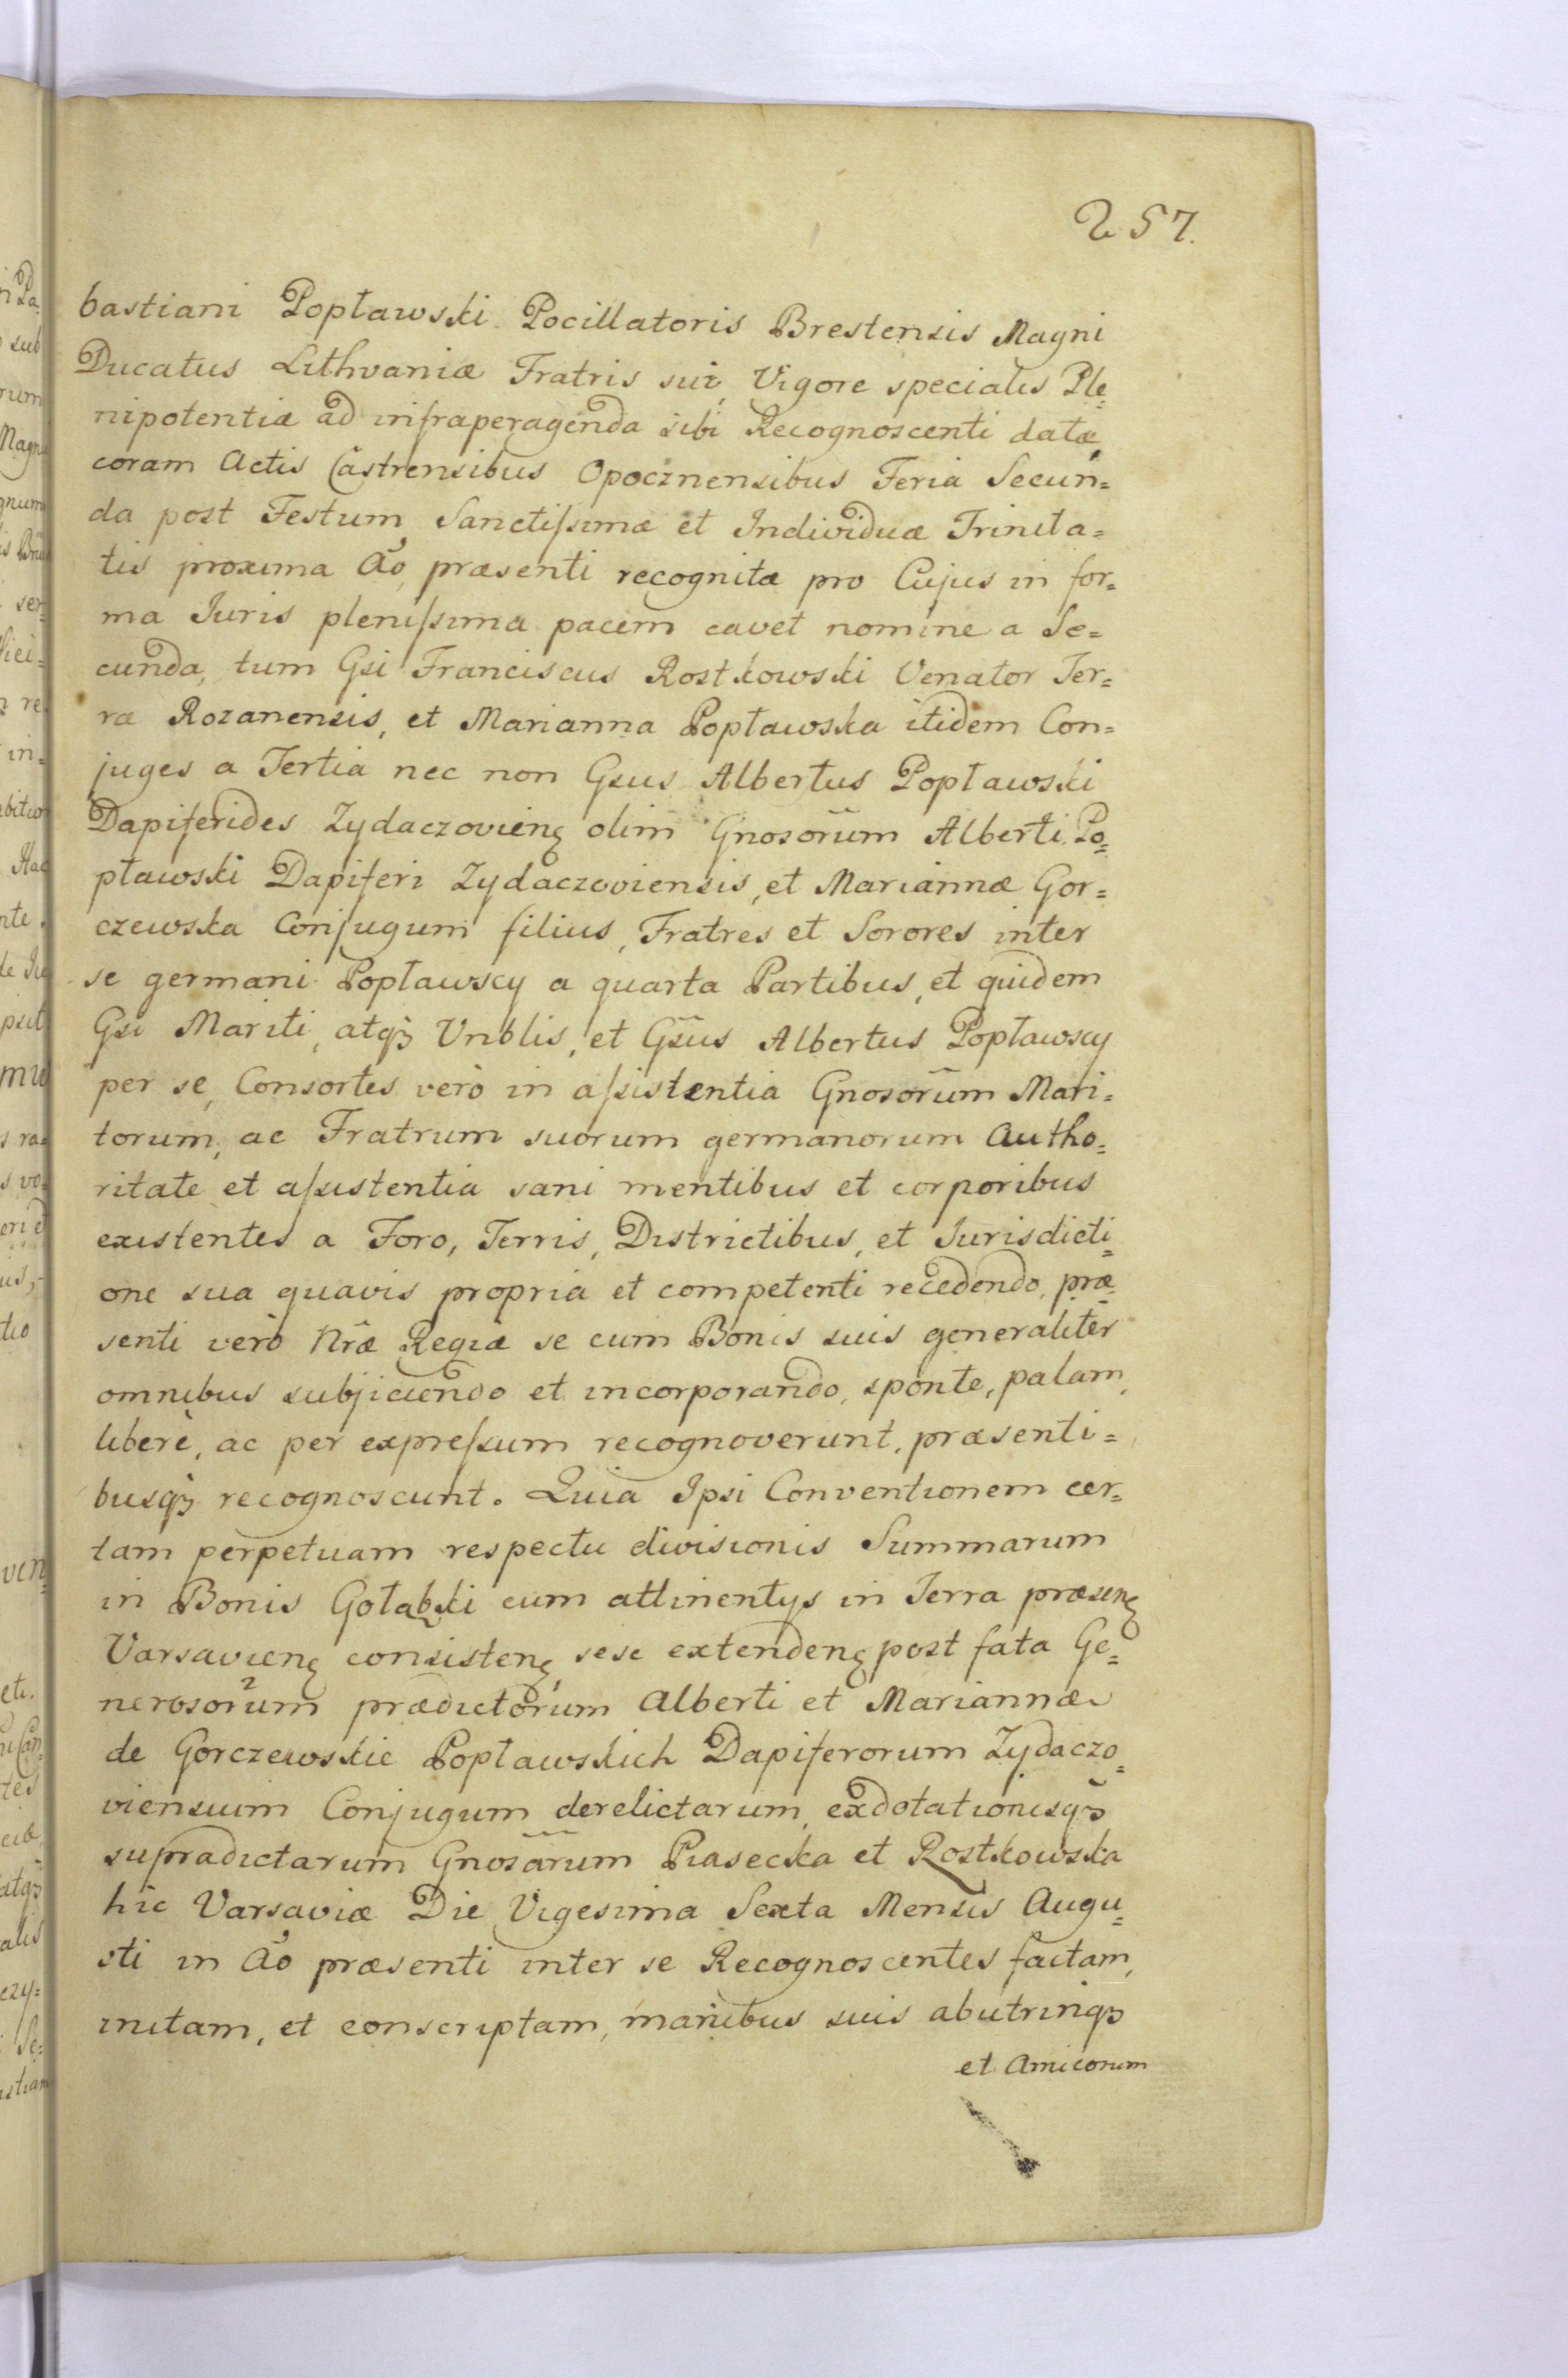 257.
bastiani Popławski Pocillatoris Brestensis Magni
Ducatus Lithvaniæ Fratris sui, Vigore specialis Ple=
nipotentiæ ad infraperagenda sibi Recognoscenti datæ,
coram Actis Castrensibus Opocznensibus Feria Secun=
da post Festum Sanctiſsimæ et Individuæ Trinita=
tis proxima Aõ præsenti recognitæ pro Cujus in for=
ma Iuris pleniſsima pacem cavet nomine a Se=
cunda, tum Gsi Franciscus Rostkowski Venator Ter=
ræ Rozanensis, et Marianna Popławska itidem Con=
juges a Tertia nec non Gsus Albertus Popławski
Dapiferides Zydaczovieñ olim Gnosorum Alberti Po=
pławski Dapiferi Zydaczoviensis, et Mariannæ Gor=
czewska Conjugum filius, Fratres et Sorores inter
se germani Popławscy a quarta Partibus, et quidem
Gsi Mariti, atq₃ Vnblis, et Gsus Albertus Popławscy
per se, Consortes verò in aſsistentia Gnosorum Mari=
torum, ac Fratrum suorum germanorum Autho=
ritate et aſsistentia sani mentibus et corporibus
existentes a Foro, Terris, Districtibus, et Jurisdicti=
one sua quavis propria et competenti recedendo, præ=
senti verò Nræ Regiæ se cum Bonis suis generaliter
omnibus subjiciendo et incorporando, sponte, palam,
liberè, ac per expreſsum recognoverunt, præsenti=
busq₃ recognoscunt. Quia Ipsi Conventionem cer=
tam perpetuam respectu divisionis Summarum
in Bonis Gołąbki cum attinentys in Terra præseñ
Varsavieñ consisteñ, sese extendeñ post fata Ge=
nerosorum prædictorum Alberti et Mariannæ
de Gorczewskie Popławskich Dapiferorum Zydaczo=
viensium Conjugum derelictarum, exdotationisq₃
supradictarum Gnosarum Piasecka et Rostkowska
hic Varsaviæ Die Vigesima Sexta Mensis Augu=
sti in Aõ præsenti inter se Recognoscentes factam,
initam, et conscriptam, manibus suis abutrinq₃
et Amicorum